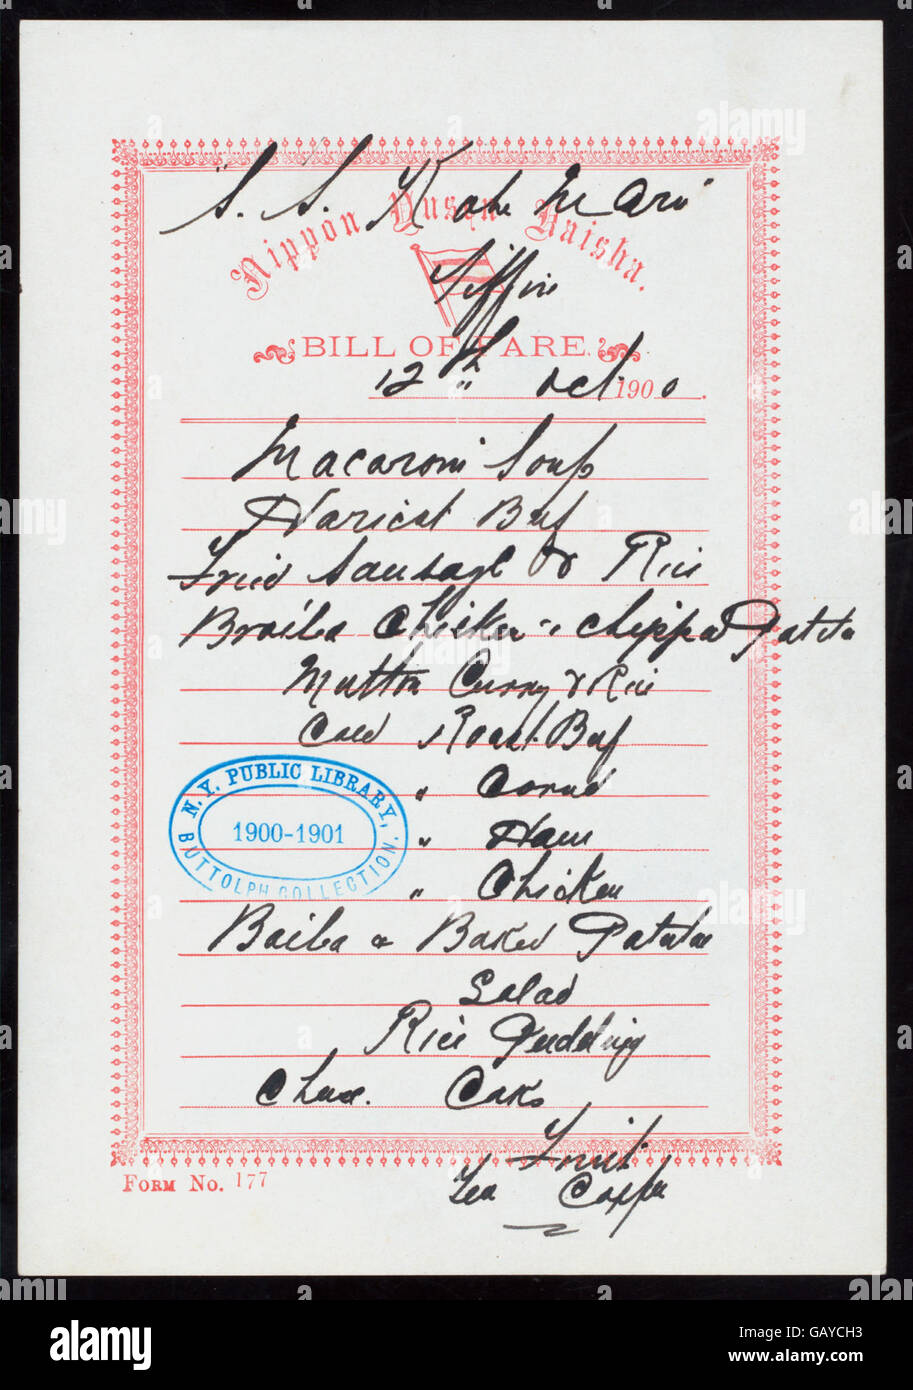 "S. S. Kobe Maru"
Nippon Yusen Kaisha.
Tiffin
BILL OF FARE.
12th Oct 1900.
Macaroni Soup
Haricot Beef
Fried Sausage & Rice
Broiled Chicken " Chipped Potatoe
Mutton Curry & Rice
Cold Roast Beef
" Corned
" Ham
" Chicken
N.Y. PUBLIC LIBRARY,
1900-1901
BUTTOLPH COLLECTION.
Boiled & Baked Potatoe
Salad
Rice Pudding
Cheese. Cake
Fruit
Tea Coffee
FORM No. 177
alamy
alamy
alamy
Image ID: GAYCH3
www.alamy.com